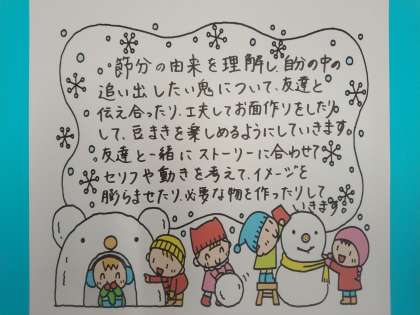 節分の由来を理解し、自分の中の
追い出したい鬼について、友達と
伝え合ったり、工夫してお面作りをしたり
して、豆まきを楽しめるようにしていきます。
友達と一緒にストーリーに合わせて
セリフや動きを考えて、イメージを
膨らませたり、必要な物を作ったりして
いきます。